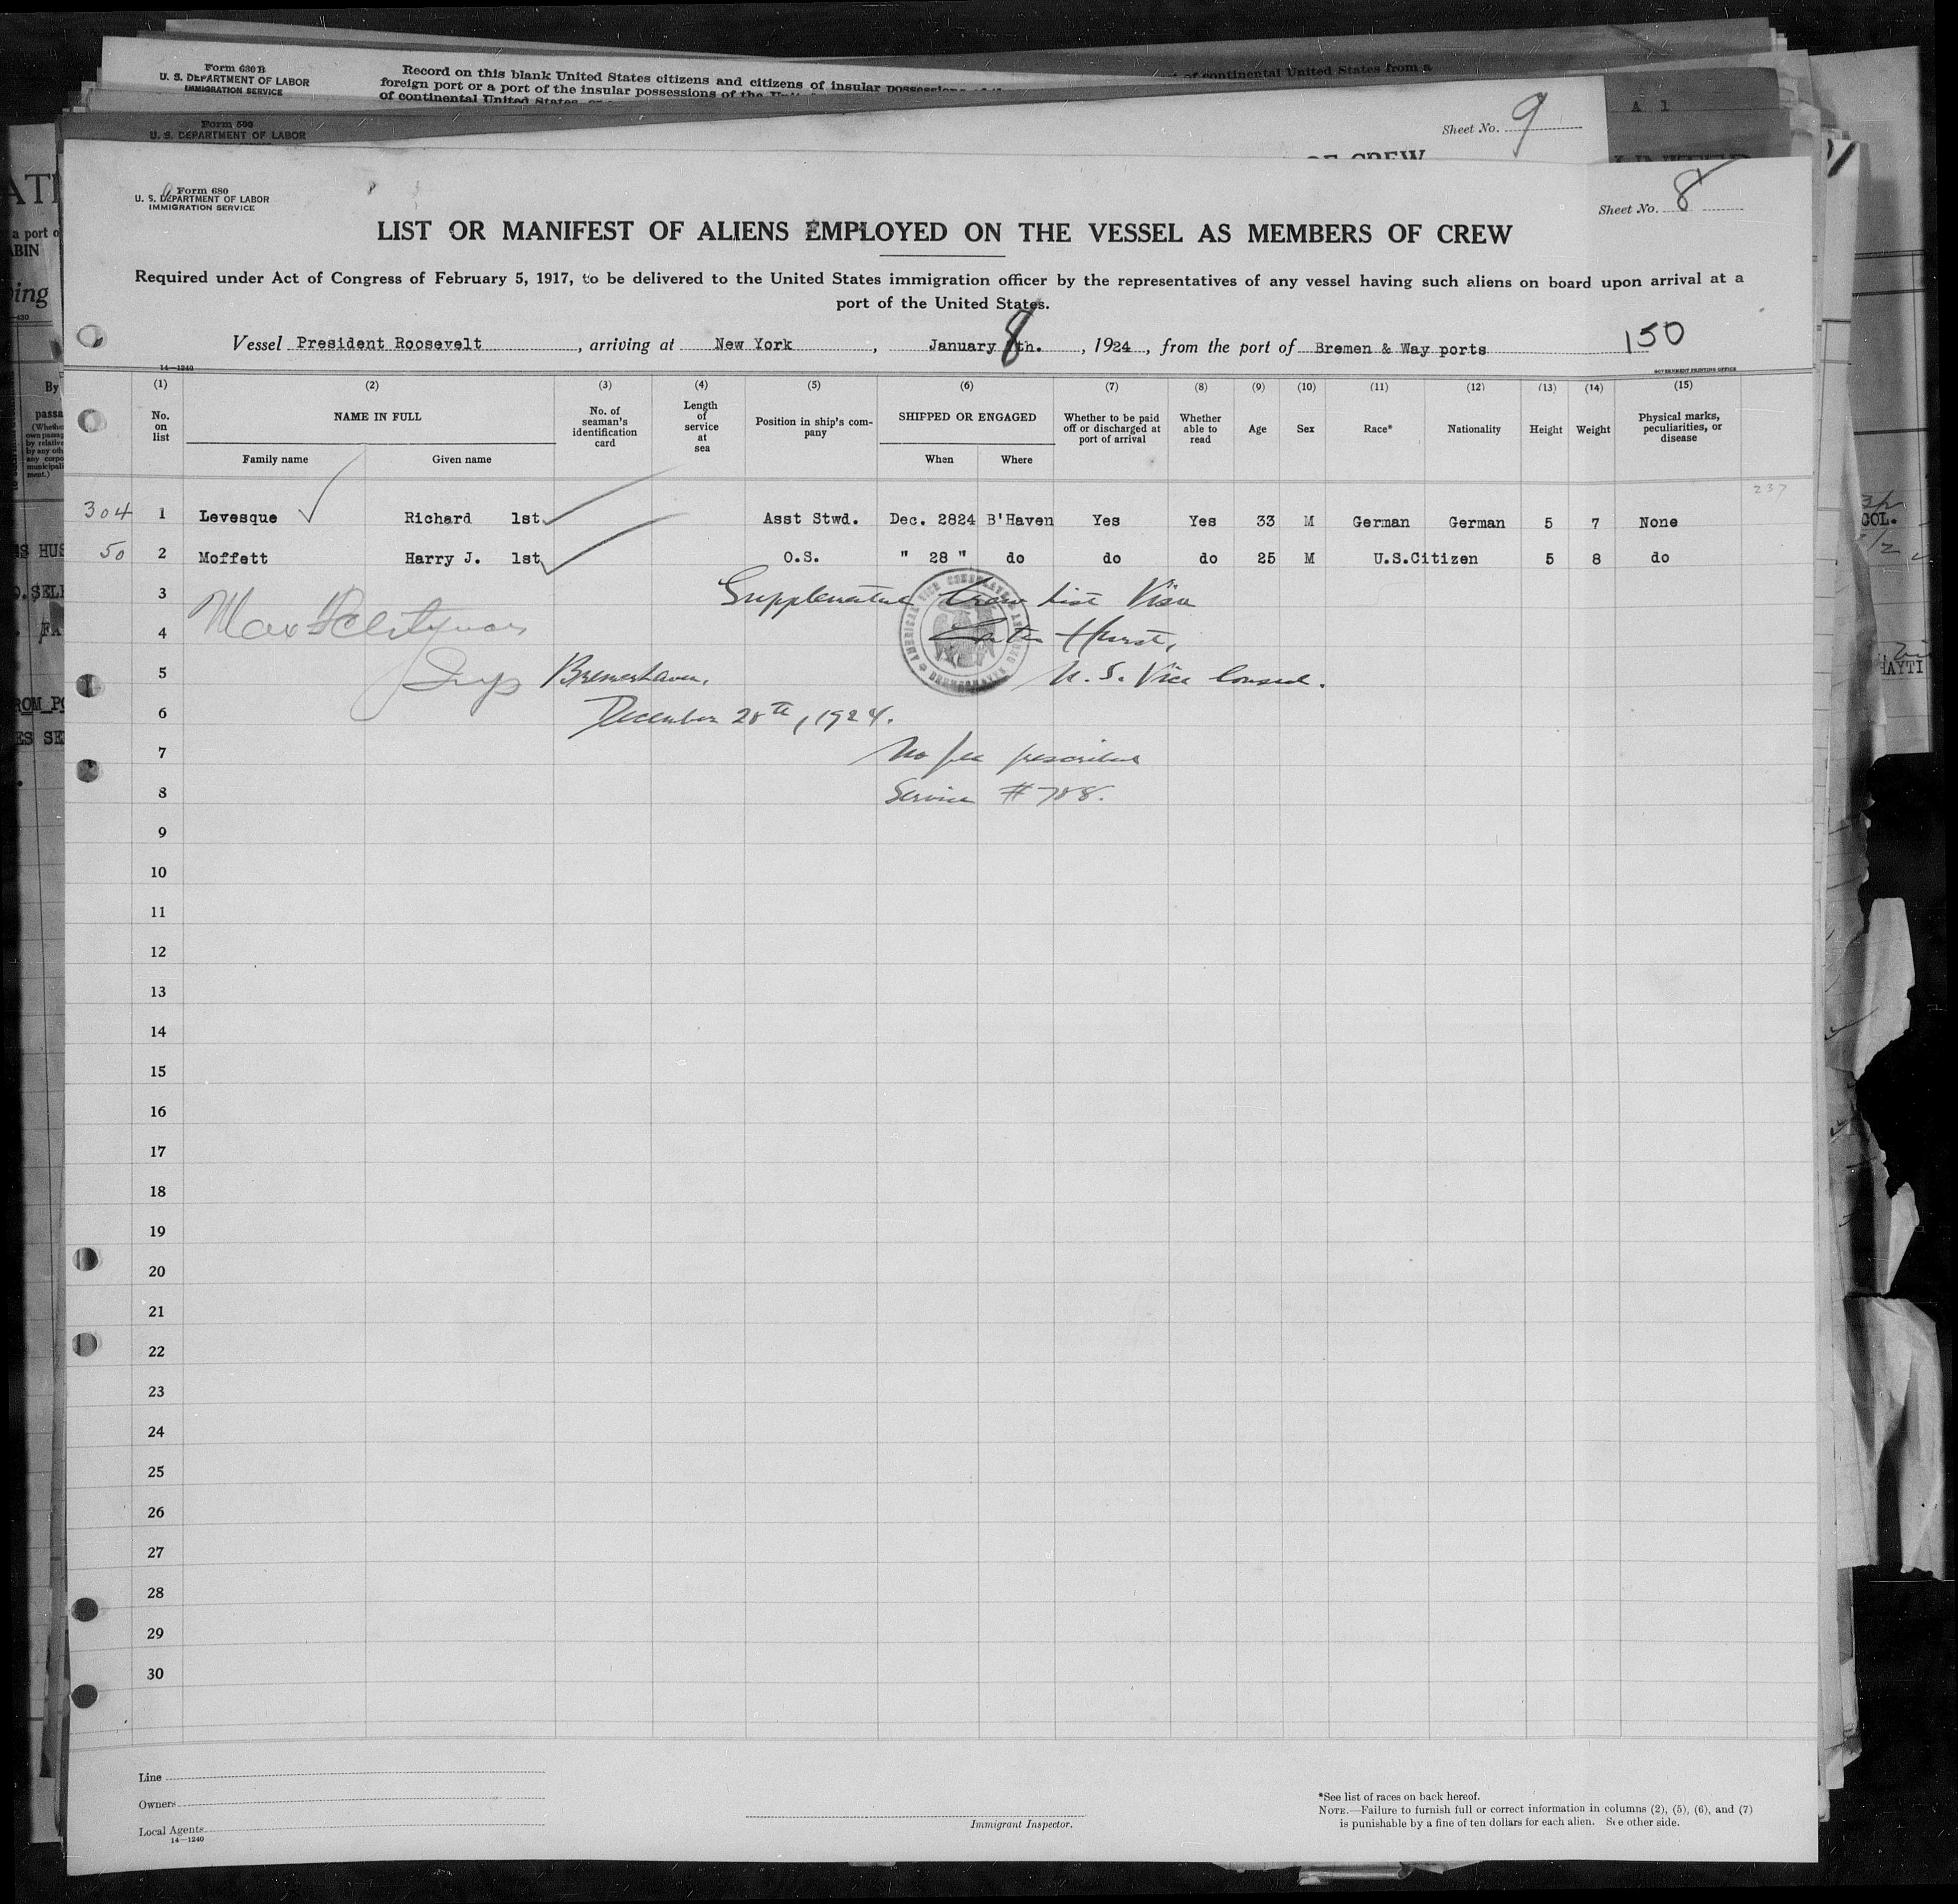 Form 630B
U. S. DEPARTMENT OF LABOR
IMMIGRATION SERVICE
Record on this blank United States citizens and citizens of insular possessions
foreign port or a port of the insular possessions of the
of continental United States
of continental United States from a
Form 500
U. S. DEPARTMENT OF LABOR
Sheet No. 9
OF CREW
A 1
Form 680
U. S. DEPARTMENT OF LABOR
IMMIGRATION SERVICE
Sheet No. 8
LIST OR MANIFEST OF ALIENS EMPLOYED ON THE VESSEL AS MEMBERS OF CREW
Required under Act of Congress of February 5, 1917, to be delivered to the United States immigration officer by the representatives of any vessel having such aliens on board upon arrival at a
port of the United States.
Vessel President Roosevelt, arriving at New York, January 8th., 1924, from the port of Bremen & Way ports 150
14—1240
GOVERNMENT PRINTING OFFICE
(1) (2) (3) (4) (5) (6) (7) (8) (9) (10) (11) (12) (13) (14) (15)
No. on list NAME IN FULL No. of seaman's identification card Length of service at sea Position in ship's company SHIPPED OR ENGAGED Whether to be paid off or discharged at port of arrival Whether able to read Age Sex Race* Nationality Height Weight Physical marks, peculiarities, or disease
Family name Given name When Where
237
304 1 Levesque Richard 1st Asst Stwd. Dec. 2824 B'Haven Yes Yes 33 M German German 5 7 None
50 2 Moffett Harry J. 1st O.S. " 28 " do do do 25 M U.S.Citizen 5 8 do
3 Crew List Visa
4 Hurst,
5 Bremerhaven, U. S. Vice Consul.
6 December 28th, 1924.
7 No fee prescribed
8 Service #788.
9
10
11
12
13
14
15
16
17
18
19
20
21
22
23
24
25
26
27
28
29
30
Line
Owners
Local Agents
14—1240
Immigrant Inspector.
*See list of races on back hereof.
NOTE.—Failure to furnish full or correct information in columns (2), (5), (6), and (7)
is punishable by a fine of ten dollars for each alien. See other side.